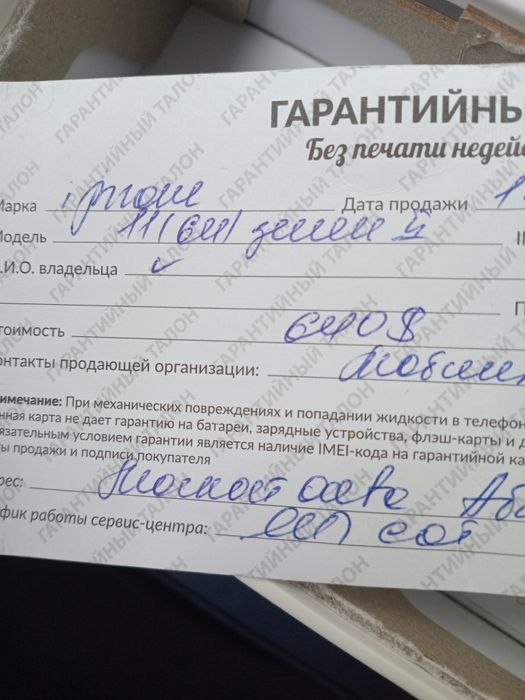 ГАРАНТИЙНЫ
Без печати недей
Марка iphone Дата продажи 1
Модель 11 (64) зеленый
.И.О. владельца ✓
П
тоимость 640$
онтакты продающей организации:
имечание: При механических повреждениях и попадании жидкости в телефон
нная карта не дает гарантию на батареи, зарядные устройства, флэш-карты и д
язательным условием гарантии является наличие IMEI-кода на гарантийной ка
ты продажи и подписи покупателя
рес:
фик работы сервис-центра: